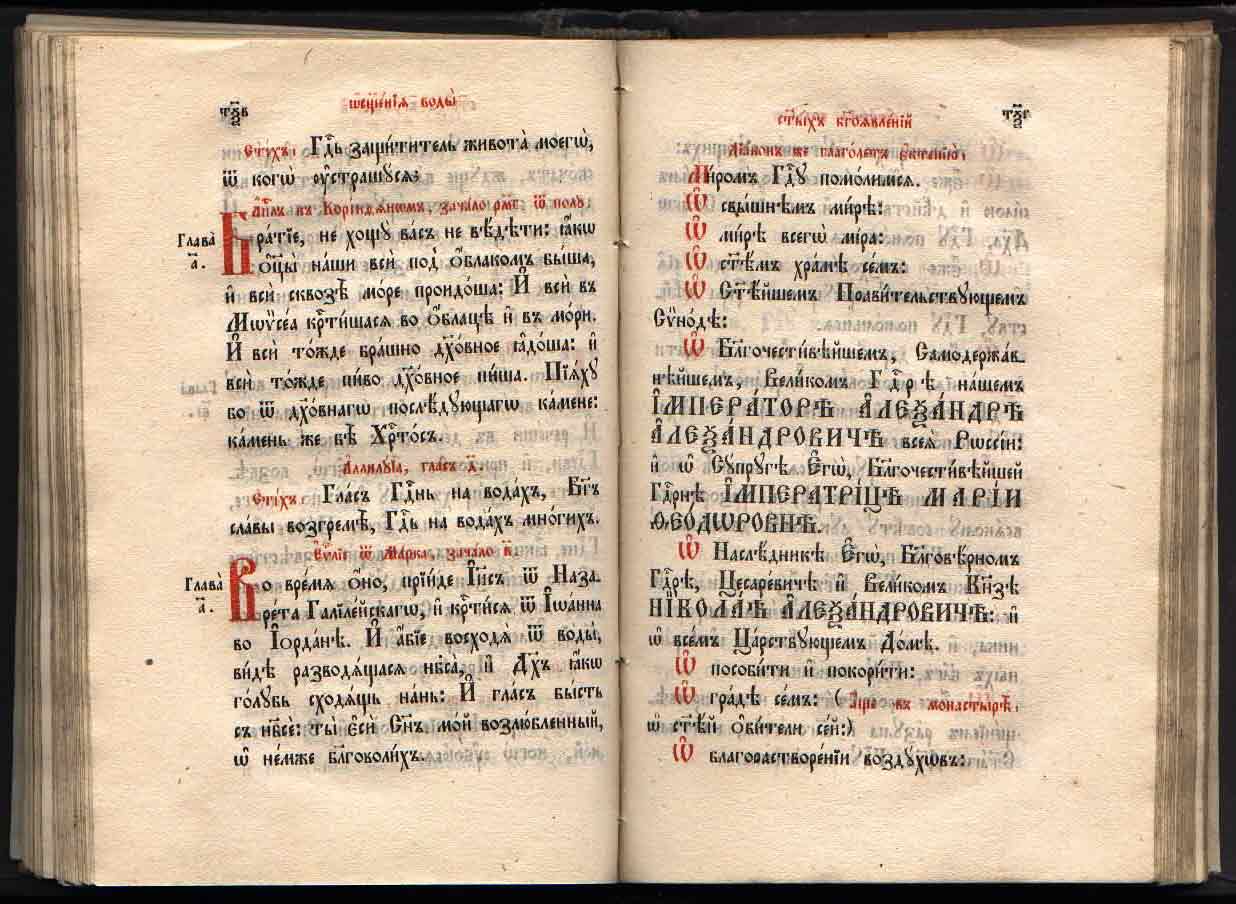 ѡ҆сщ҃е́нїѧ воды̀
Сті́хъ: Гдⷭ҇ь защи́титель живота̀ моегѡ̀,
ѿ когѡ̀ ᲂу҆страшꙋ́сѧ;
А҆пⷭ҇лъ къ Корі́нѳѧнѡмъ, зача́ло рм҃г. ѿ полꙋ̀
Глава̀
а҃і.
Бра́тїе, не хощꙋ̀ ва́съ не вѣ́дѣти: ꙗ҆́кѡ
ѻ҆тцы̀ на́ши всѝ под̾ ѻ҆́блакомъ бы́ша,
и҆ всѝ сквозѣ̀ мо́ре проидо́ша: И҆ всѝ въ
Мѡѷсе́а крⷭ҇ти́шасѧ во ѻ҆́блацѣ и҆ въ мо́ри.
И҆ всѝ то́жде бра́шно дх҃о́вное ꙗ҆до́ша: и҆
всѝ то́жде пи́во дх҃о́вное пи́ша. Пїѧ́хꙋ
бо ѿ дх҃о́внагѡ послѣ́дꙋющагѡ ка́мене:
ка́мень же бѣ̀ Хрⷭ҇то́съ.
А҆ллилꙋ́їа, гла́съ д҃.
Сті́хъ: Гла́съ Гдⷭ҇нь на вода́хъ, Бг҃ъ
сла́вы возгремѣ̀, Гдⷭ҇ь на вода́хъ мно́гихъ.
Е҆ѵⷢ҇лїе ѿ Ма́рка, зача́ло в҃.
Глава̀
а҃.
Во вре́мѧ ѻ҆́но, прїи́де І҆и҃съ ѿ Наза-
ре́та Галїле́йскагѡ, и҆ крⷭ҇ти́сѧ ѿ І҆ѡа́нна
во І҆ѻрда́нѣ. И҆ а҆́бїе восходѧ̀ ѿ воды̀,
ви́дѣ разводѧ́щасѧ нб҃са̀, и҆ Дх҃ъ ꙗ҆́кѡ
го́лꙋбь сходѧ́щь на́нь: И҆ гла́съ бы́сть
съ нб҃сѐ: ты̀ є҆сѝ Сн҃ъ мо́й возлю́бленный,
ѡ҆ не́мже бл҃говоли́хъ.
ст҃ы́хъ бг҃оѧвле́нїй
Дїа́конъ же глаго́летъ є҆ктенїю̀:
Ми́ромъ Гдⷭ҇ꙋ помо́лимсѧ.
Ѡ҆ свы́шнѣмъ ми́рѣ:
Ѡ҆ ми́рѣ всегѡ̀ мі́ра:
Ѡ҆ ст҃ѣ́мъ хра́мѣ се́мъ:
Ѡ҆ Ст҃ѣ́йшемъ Прави́тельствꙋющемъ
Сѷно́дѣ:
Ѡ҆ Бл҃гочести́вѣйшемъ, Самодержа́в-
нѣйшемъ, Вели́комъ Гдⷭ҇рѣ̀ на́шемъ
І҆МПЕРА́ТОРѢ А҆ЛЕѮА́НДРѢ
А҆ЛЕѮА́НДРОВИЧѢ всеѧ̀ Рѡссі́и:
и҆ ѡ҆ Сꙋпрꙋ́гѣ Е҆гѡ̀, Бл҃гочести́вѣйшей
Гдⷭ҇рнѣ І҆МПЕРАТРІ́ЦѢ МАРІ́И
ѲЕО́ДѠРОВНѢ.
Ѡ҆ Наслѣ́дникѣ Е҆гѡ̀, Бл҃говѣ́рномъ
Гдⷭ҇рѣ, Цесаре́вичѣ и҆ Вели́комъ Кн҃зѣ
НІКОЛА́Ѣ А҆ЛЕѮА́НДРОВИЧѢ: и҆
ѡ҆ все́мъ Ца́рствꙋющемъ До́мѣ.
Ѡ҆ пособи́ти и҆ покори́ти:
Ѡ҆ гра́дѣ се́мъ: (А҆́ще въ монастырѣ̀:
ѡ҆ ст҃ѣ́й ѻ҆би́тели се́й:)
Ѡ҆ благорастворе́нїи воздꙋ́хѡвъ: